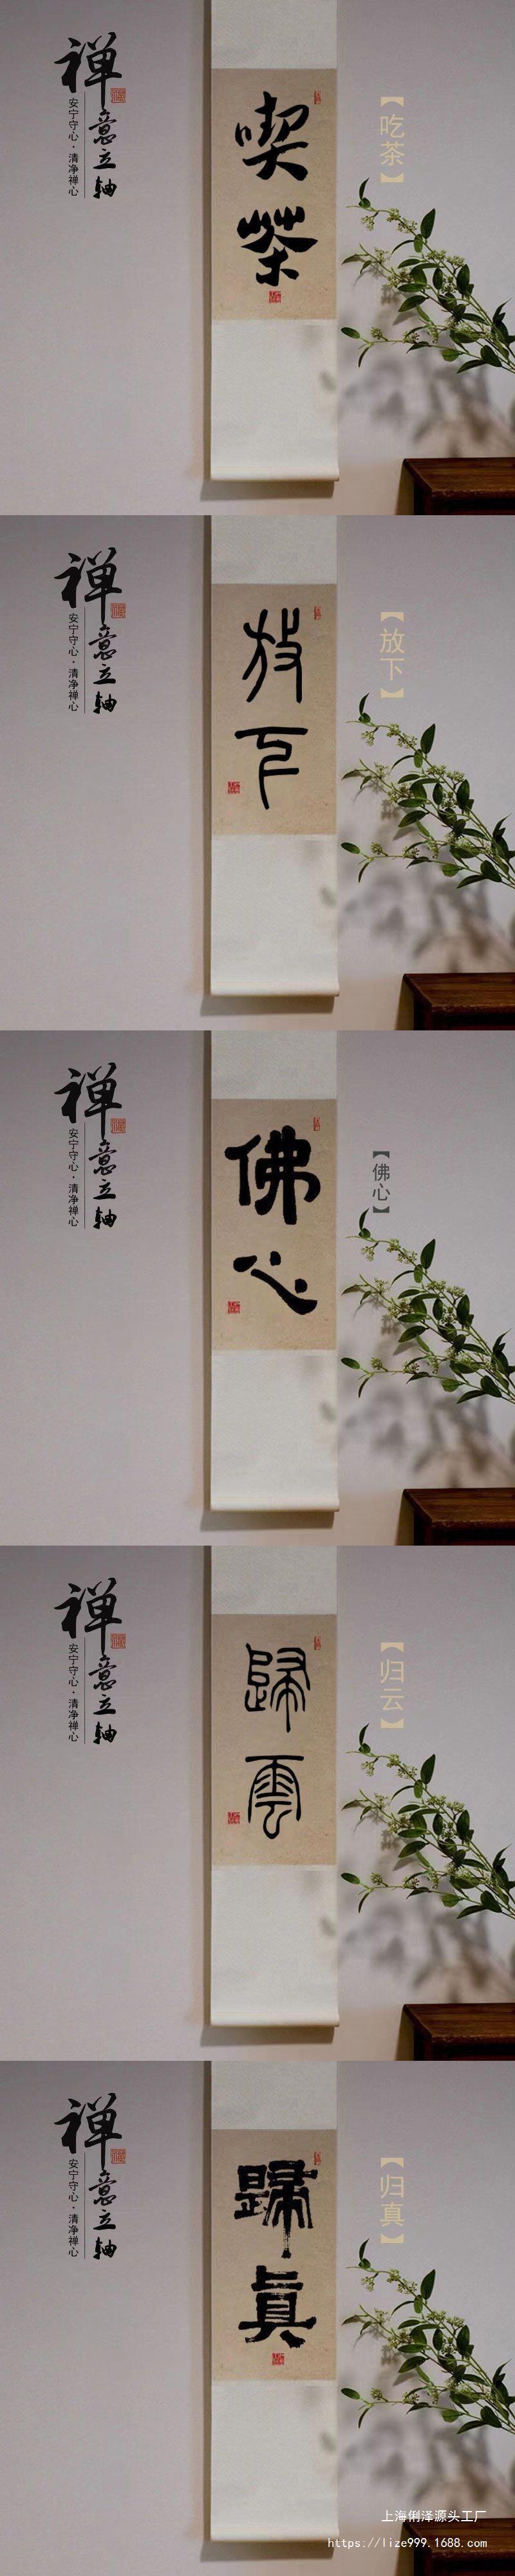 禅意立轴
安宁守心·清净禅心
喫茶
【吃茶】
禅意立轴
安宁守心·清净禅心
放下
【放下】
禅意立轴
安宁守心·清净禅心
佛心
【佛心】
禅意立轴
安宁守心·清净禅心
歸雲
【归云】
禅意立轴
安宁守心·清净禅心
歸真
【归真】
上海俐泽源头工厂
https://lize999.1688.com